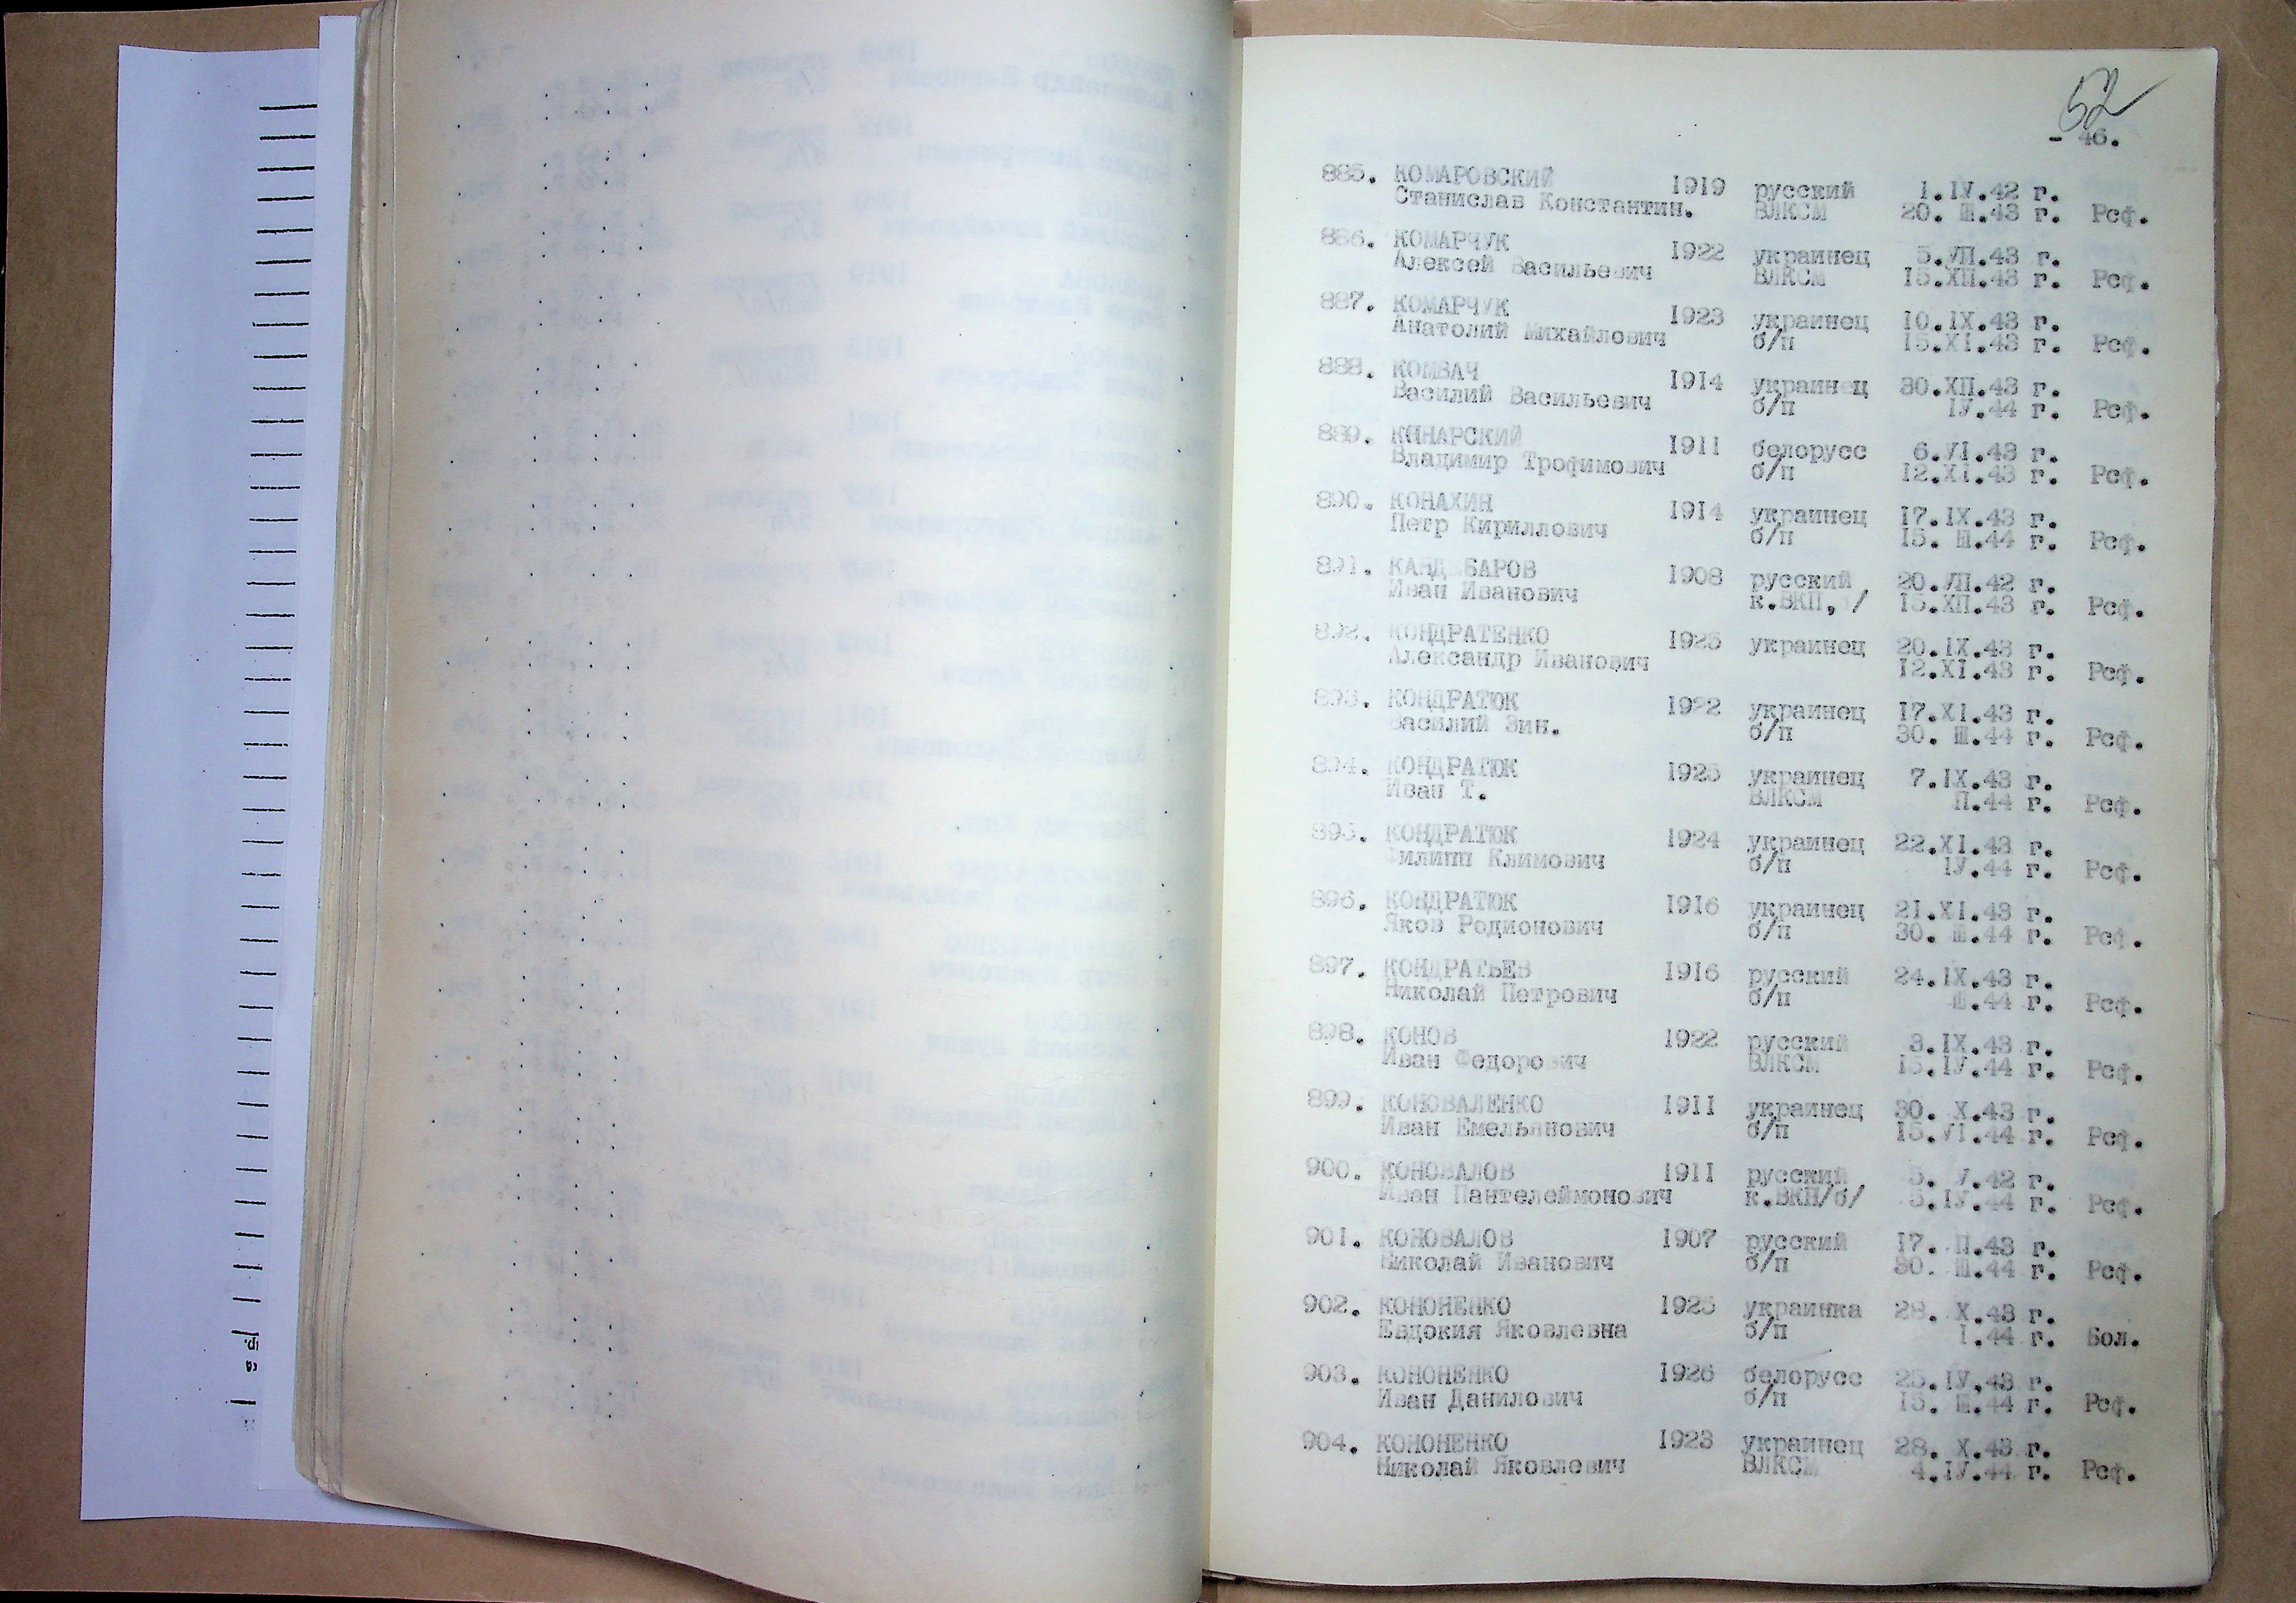 52
- 46.
885. КОМАРОВСКИЙ 1919 русский 1.IV.42 г.
Станислав Константин. ВЛКСМ 20. Ш.43 г. Рсф.
886. КОМАРЧУК 1922 украинец 5.УП.43 г.
Алексей Васильевич ВЛКСМ 15.ХП.43 г. Рсф.
887. КОМАРЧУК 1923 украинец 10.IX.43 г.
Анатолий Михайлович б/п 15.XI.43 г. Рсф.
888. КОМВАЧ 1914 украинец 30.ХП.43 г.
Василий Васильевич б/п IУ.44 г. Рсф.
889. КОНАРСКИЙ 1911 белорусс 6.УI.43 г.
Владимир Трофимович б/п 12.XI.43 г. Рсф.
890. КОНАХИН 1914 украинец 17.IX.43 г.
Петр Кириллович б/п 15. Ш.44 г. Рсф.
891. 1908 русский 20.УП.42 г.
Иван Иванович к.ВКП, / 15.ХП.43 г. Рсф.
892. КОНДРАТЕНКО 1925 украинец 20.IX.43 г.
Александр Иванович 12.XI.43 г. Рсф.
893. КОНДРАТЮК 1922 украинец 17.XI.43 г.
Василий Зин. б/п 30. Ш.44 г. Рсф.
894. КОНДРАТЮК 1925 украинец 7.IX.43 г.
Иван Т. ВЛКСМ П.44 г. Рсф.
895. КОНДРАТЮК 1924 украинец 22.XI.43 г.
Филипп Климович б/п IУ.44 г. Рсф.
896. КОНДРАТЮК 1916 украинец 21.XI.43 г.
Яков Родионович б/п 30. Ш.44 г. Рсф.
897. КОНДРАТЬЕВ 1916 русский 24.IX.43 г.
Николай Петрович б/п Ш.44 г. Рсф.
898. КОНОВ 1922 русский 3.IX.43 г.
Иван Федорович ВЛКСМ 15.IУ.44 г. Рсф.
899. КОНОВАЛЕНКО 1911 украинец 30. X.43 г.
Иван Емельянович б/п 15.УI.44 г. Рсф.
900. КОНОВАЛОВ 1911 русский 5. У.42 г.
Иван Пантелеймонович к.ВКП/б/ 5.IУ.44 г. Рсф.
901. КОНОВАЛОВ 1907 русский 17. П.43 г.
Николай Иванович б/п 30. Ш.44 г. Рсф.
902. КОНОНЕНКО 1925 украинка 28. X.43 г.
Евдокия Яковлевна б/п I.44 г. Бол.
903. КОНОНЕНКО 1926 белорусс 25.IУ.43 г.
Иван Данилович б/п 15. Ш.44 г. Рсф.
904. КОНОНЕНКО 1923 украинец 28. X.43 г.
Николай Яковлевич ВЛКСМ 4.IУ.44 г. Рсф.